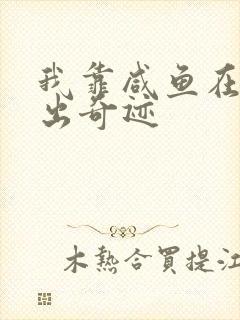 我靠咸鱼在
出奇迹
木熱合買提江